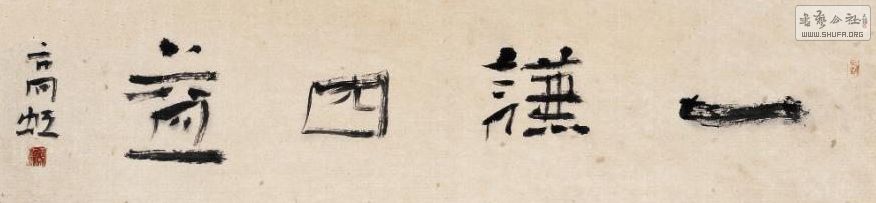 一謙四益
高虹
書藝公社
WWW.SHUFA.ORG